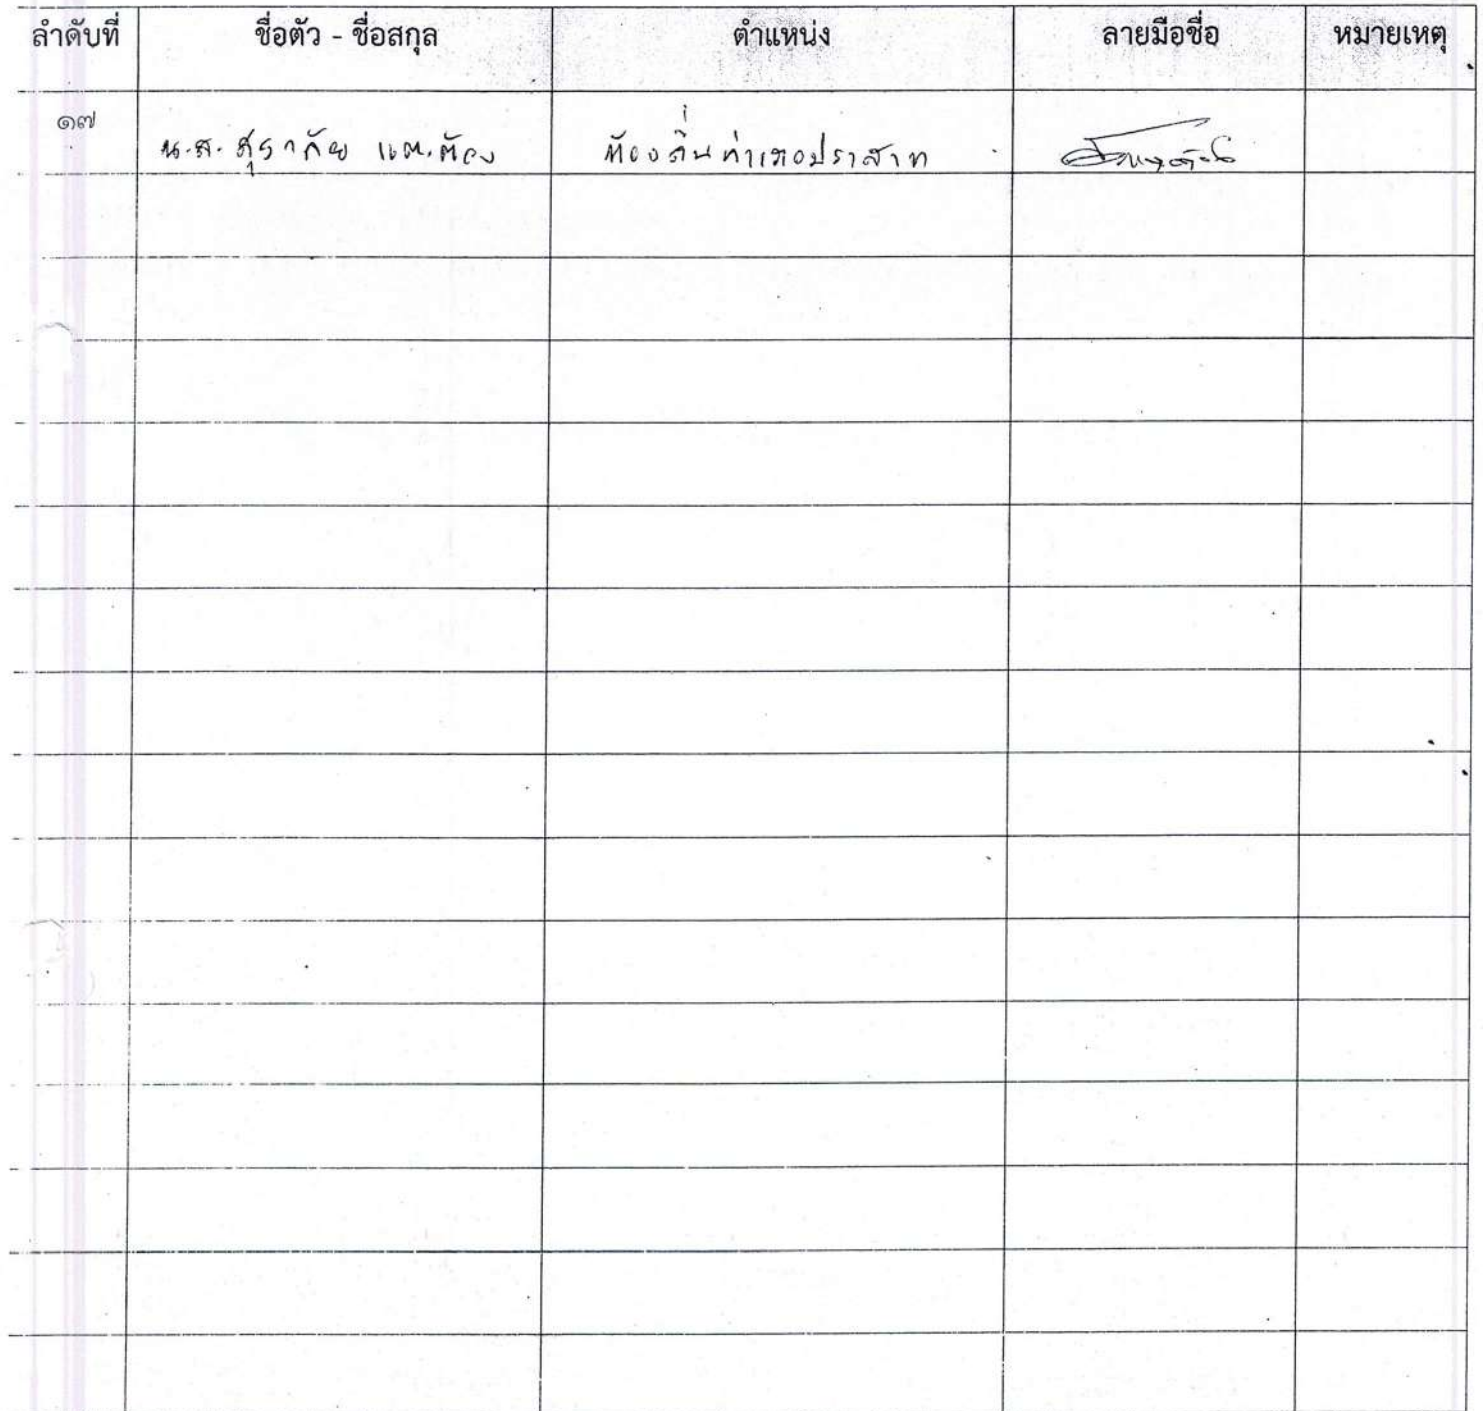 ลำดับที่ ชื่อตัว - ชื่อสกุล ตำแหน่ง ลายมือชื่อ หมายเหตุ
๑๗ น.ส. ท้องถิ่นอำเภอปราสาท